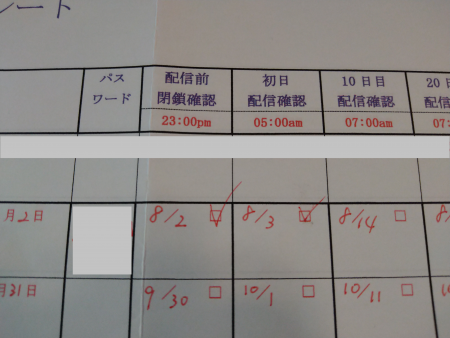 ート
パス
ワード
配信前
閉鎖確認
23:00pm
初日
配信確認
05:00am
10日目
配信確認
07:00am
20
配信
07:
月2日
8/2 □
8/3 □
8/14 □
8/
月31日
9/30 □
10/1 □
10/11 □